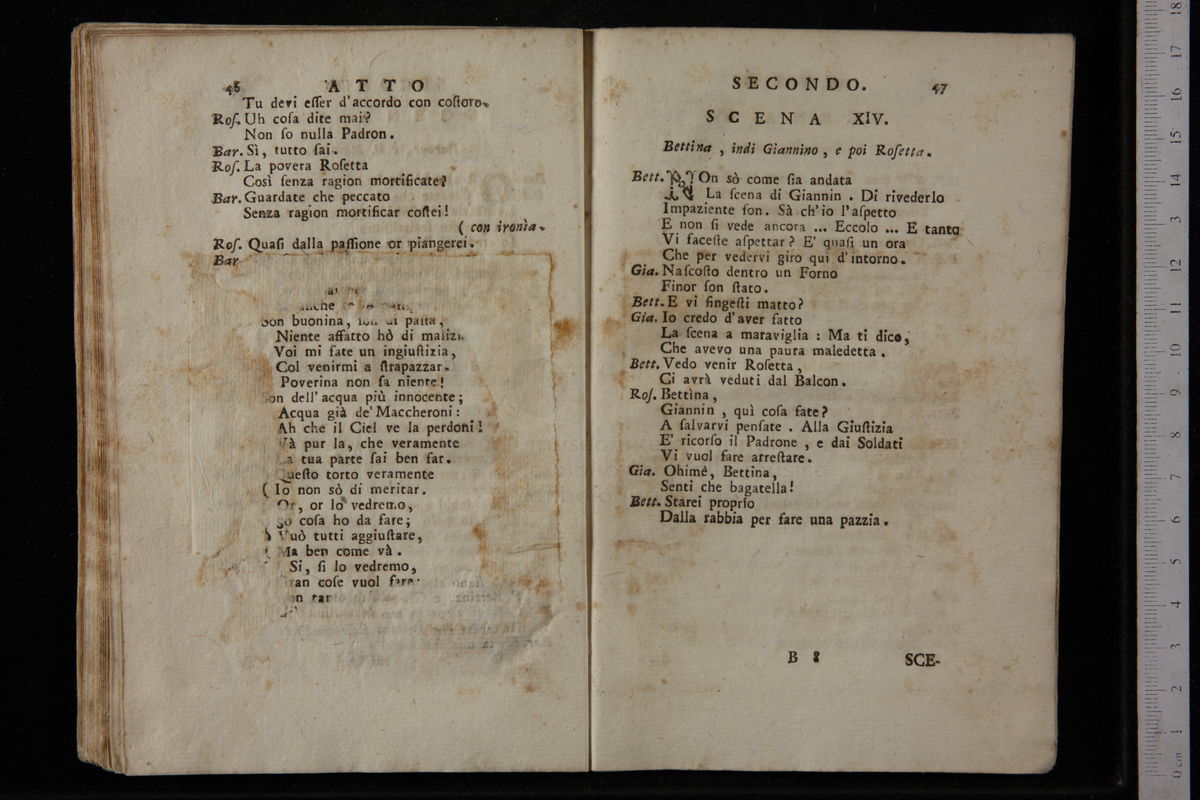 46 ATTO
Tu devi eſſer d'accordo con coſtoro.
Roſ. Uh coſa dite mai?
Non ſo nulla Padron.
Bar. Sì, tutto ſai.
Roſ. La povera Roſetta
Così ſenza ragion mortificate?
Bar. Guardate che peccato
Senza ragion mortificar coſtei!
( con ironìa.
Roſ. Quaſi dalla paſſione or piangerei.
Bar
buonina,
Niente affatto hò di
Voi mi fate un ingiuſtizia,
Col venirmi a ſtrapazzar.
Poverina non ſa niente!
dell'acqua più innocente;
Acqua già de' Maccheroni:
Ah che il Ciel ve la perdoni!
Và pur la, che veramente
La tua parte ſai ben far.
Queſto torto veramente
( Io non sò di meritar.
Or, or lo vedremo,
coſa ho da fare;
Vuò tutti aggiuſtare,
Ma ben come và.
Si, ſi lo vedremo,
coſe vuol
SECONDO. 47
SCENA XIV.
Bettina, indi Giannino, e poi Roſetta.
Bett. NOn sò come ſia andata
La ſcena di Giannin. Di rivederlo
Impaziente ſon. Sà ch'io l'aſpetto
E non ſi vede ancora ... Eccolo ... E tanto
Vi faceſte aſpettar? E' quaſi un ora
Che per vedervi giro quì d'intorno.
Gia. Naſcoſto dentro un Forno
Finor ſon ſtato.
Bett. E vi fingeſti matto?
Gia. Io credo d'aver fatto
La ſcena a maraviglia: Ma ti dico,
Che avevo una paura maledetta.
Bett. Vedo venir Roſetta,
Ci avrà veduti dal Balcon.
Roſ. Bettìna,
Giannin, quì coſa fate?
A ſalvarvi penſate. Alla Giuſtizia
E' ricorſo il Padrone, e dai Soldati
Vi vuol fare arreſtare.
Gia. Ohimè, Bettina,
Senti che bagatella!
Bett. Starei proprio
Dalla rabbia per fare una pazzia.
B 8 SCE-